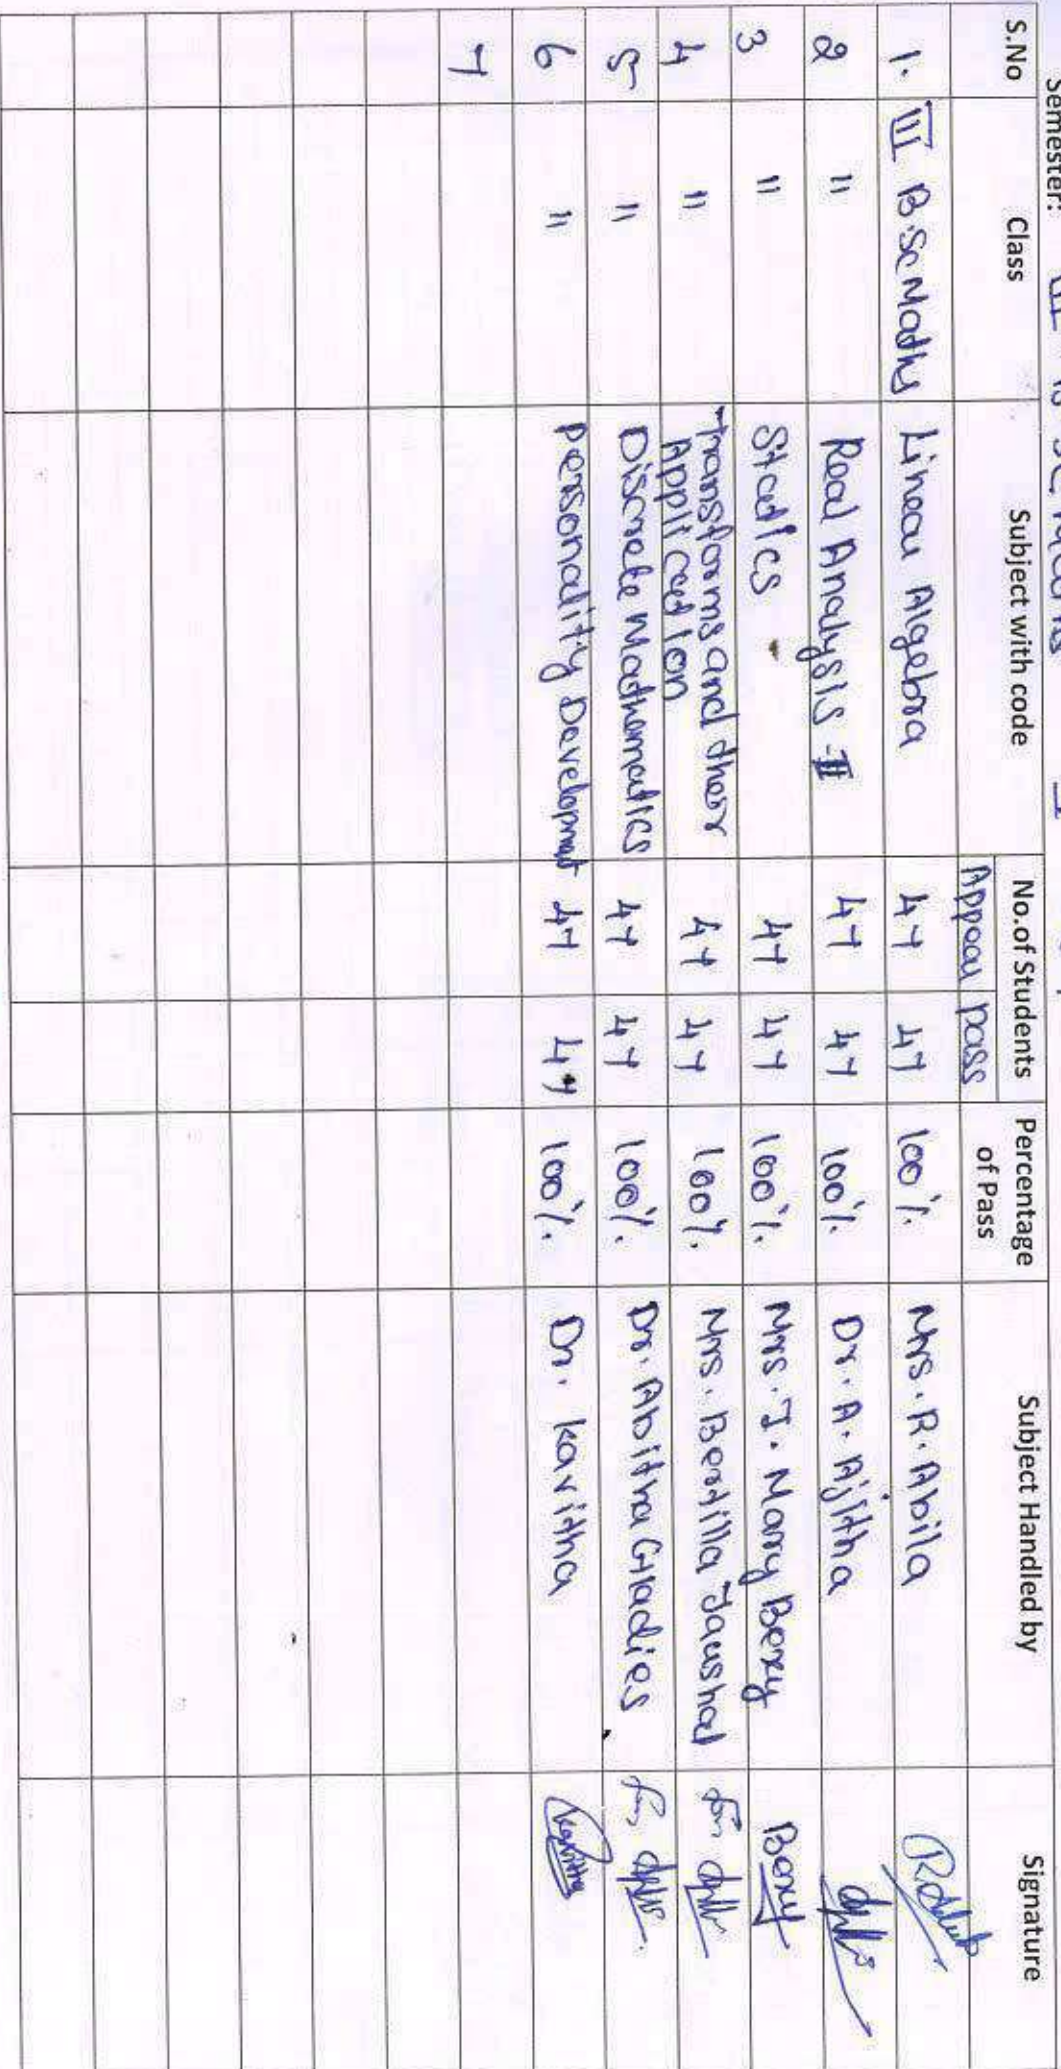 Semester:
S.No Class Subject with code No.of Students Percentage of Pass Subject Handled by Signature
Appear pass
1. III B.Sc Maths Linear Algebra 47 47 100%. Mrs. R. Abila
2 " Real Analysis -II 47 47 100%. Dr. A. Ajitha
3 " Statics 47 47 100%. Mrs. J. Mary Bexy Bexy
4 " Transforms and their Application 47 47 100%. Mrs. Bertilla Jaushal for
5 " Discrete Mathematics 47 47 100%. Dr. Abitha Gladies for
6 " Personality Development 47 47 100%. Dr. Kavitha Kavitha
7